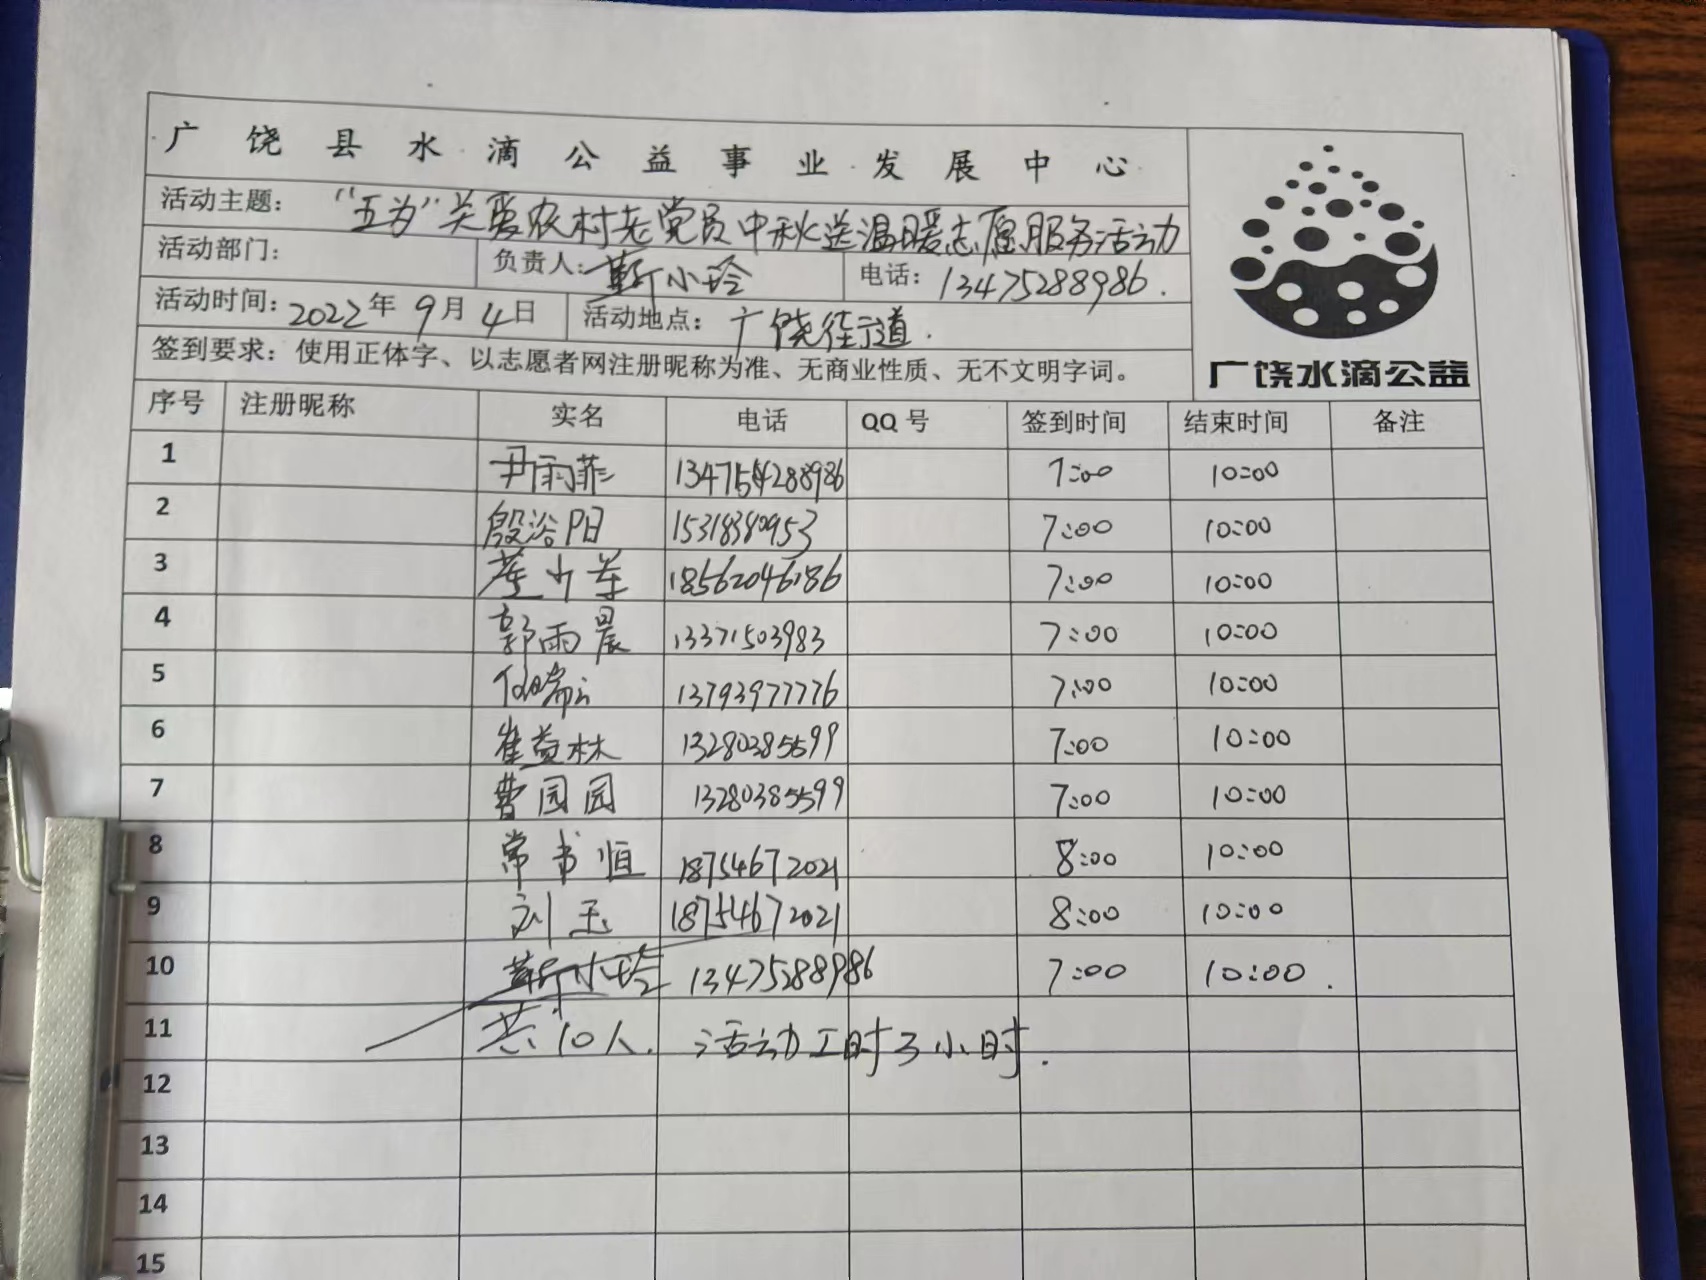 广饶县水滴公益事业发展中心
活动主题："五为"关爱农村老党员中秋送温暖志愿服务活动
活动部门： 负责人：靳小玲 电话：13475288986.
活动时间：2022年9月4日 活动地点：广饶街道.
签到要求：使用正体字、以志愿者网注册昵称为准、无商业性质、无不文明字词。
广饶水滴公益
序号 注册昵称 实名 电话 QQ号 签到时间 结束时间 备注
1 尹雨菲 7:00 10:00
2 殷浴阳 15318380953 7:00 10:00
3 18562046186 7:00 10:00
4 郭雨晨 13371503983 7:00 10:00
5 13793977776 7:00 10:00
6 崔益林 13280385599 7:00 10:00
7 曹园园 13280385599 7:00 10:00
8 常书恒 18754672021 8:00 10:00
9 刘玉 18754672021 8:00 10:00
10 靳小玲 13475288986 7:00 10:00.
11 共10人. 活动工时3小时.
12
13
14
15